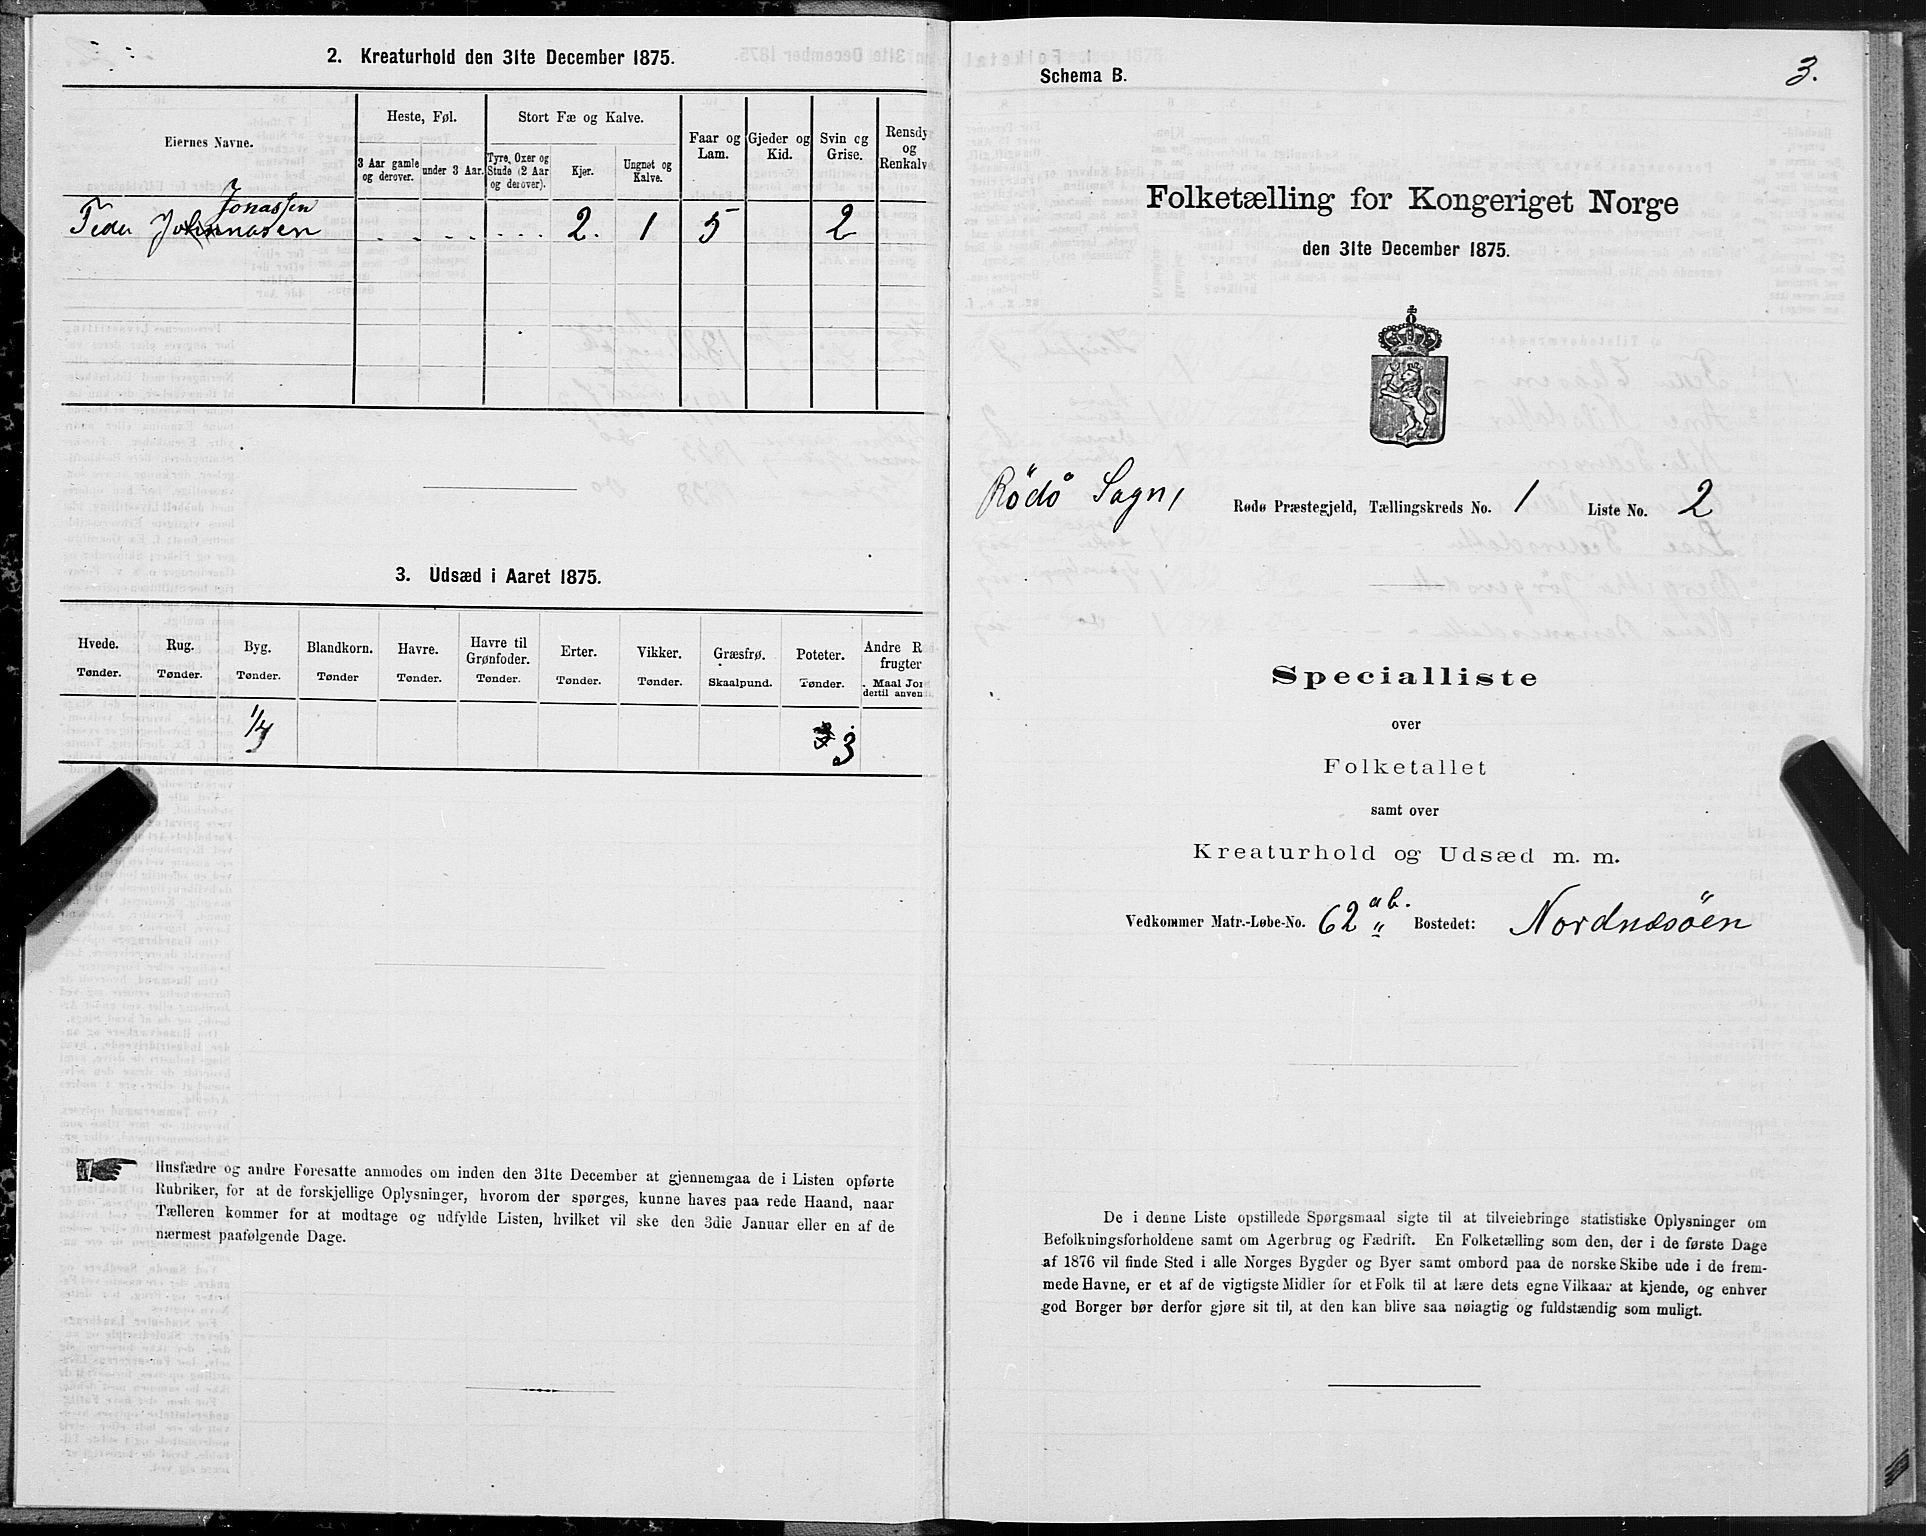 2. Kreaturhold den 31te December 1875.
Eiernes Navne.
Heste, Føl.
Stort Fæ og Kalve.
Faar og Lam.
Gjeder og Kid.
Svin og Grise.
Rensdy
og
Renkalv
3 Aar gamle og derover.
under 3 Aar.
Tyre, Oxer og Stude (2 Aar og derover).
Kjør.
Ungnøt og Kalve.
Jonassen
Peder Johnnasen 2. 1 5 2
3. Udsæd i Aaret 1875.
Hvede. Tønder.
Rug. Tønder.
Byg. Tønder.
Blandkorn. Tønder
Havre. Tønder.
Havre til Grønfoder. Tønder.
Erter. Tønder.
Vikker. Tønder.
Græsfrø. Skaalpund.
Poteter. Tønder.
Andre R
frugter
Maal Jor
dertil anven
3
Husfædre og andre Foresatte anmodes om inden den 31te December at gjennemgaa de i Listen opførte
Rubriker, for at de forskjellige Oplysninger, hvorom der spørges, kunne haves paa rede Haand, naar
Tælleren kommer for at modtage og udfylde Listen, hvilket vil ske den 3die Januar eller en af de
nærmest paafølgende Dage.
Schema B.
3.
Folketælling for Kongeriget Norge
den 31te December 1875.
Rödö Sogn, Rødø Præstegjeld, Tællingskreds No. 1 Liste No. 2
Specialliste
over
Folketallet
samt over
Kreaturhold og Udsæd m. m.
Vedkommer Matr.-Løbe-No. 62 ab. Bostedet: Nordnæsöen
De i denne Liste opstillede Spørgsmaal sigte til at tilveiebringe statistiske Oplysninger om
Befolkningsforholdene samt om Agerbrug og Fædrift. En Folketælling som den, der i de første Dage
af 1876 vil finde Sted i alle Norges Bygder og Byer samt ombord paa de norske Skibe ude i de frem-
mede Havne, er et af de vigtigste Midler for et Folk til at lære dets egne Vilkaar at kjende, og enhver
god Borger bør derfor gjøre sit til, at den kan blive saa nøiagtig og fuldstændig som muligt.